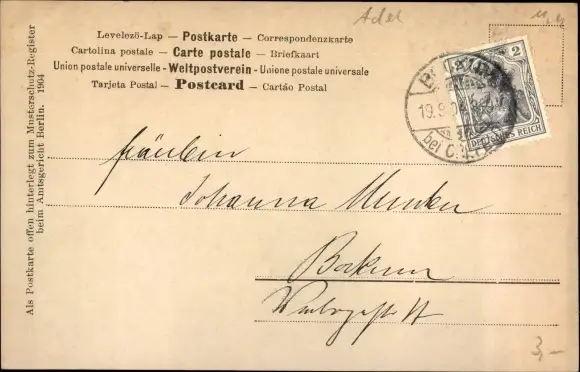 Adel
Levelező-Lap — Postkarte — Correspondenzkarte
Cartolina postale — Carte postale — Briefkaart
Union postale universelle - Weltpostverein - Unione postale universale
Tarjeta Postal — Postcard — Cartão Postal
2
DEUTSCHES REICH
19.9.0
bei
Fräulein
Johanna
Bochum
3,-
Als Postkarte offen hinterlegt zum Musterschutz-Register
beim Amtsgericht Berlin. 1904